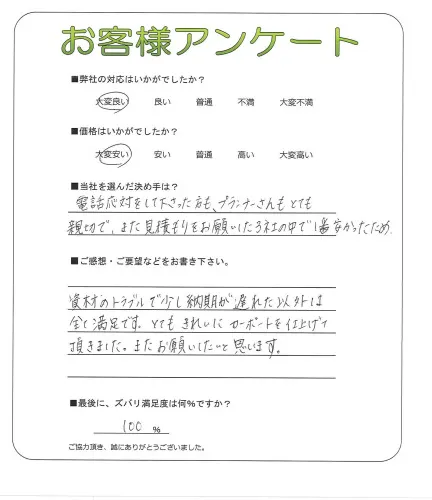 お客様アンケート
■弊社の対応はいかがでしたか？
大変良い 良い 普通 不満 大変不満
■価格はいかがでしたか？
大変安い 安い 普通 高い 大変高い
■当社を選んだ決め手は？
電話応対をして下さった方も、プランナーさんもとても
親切で、また見積もりをお願いした3社の中で1番安かったため
■ご感想・ご要望などをお書き下さい。
資材のトラブルで少し納期が遅れた以外は
全て満足です。とてもきれいにカーポートを仕上げて
頂きました。またお願いしたいと思います。
■最後に、ズバリ満足度は何%ですか？
100 %
ご協力頂き、誠にありがとうございました。